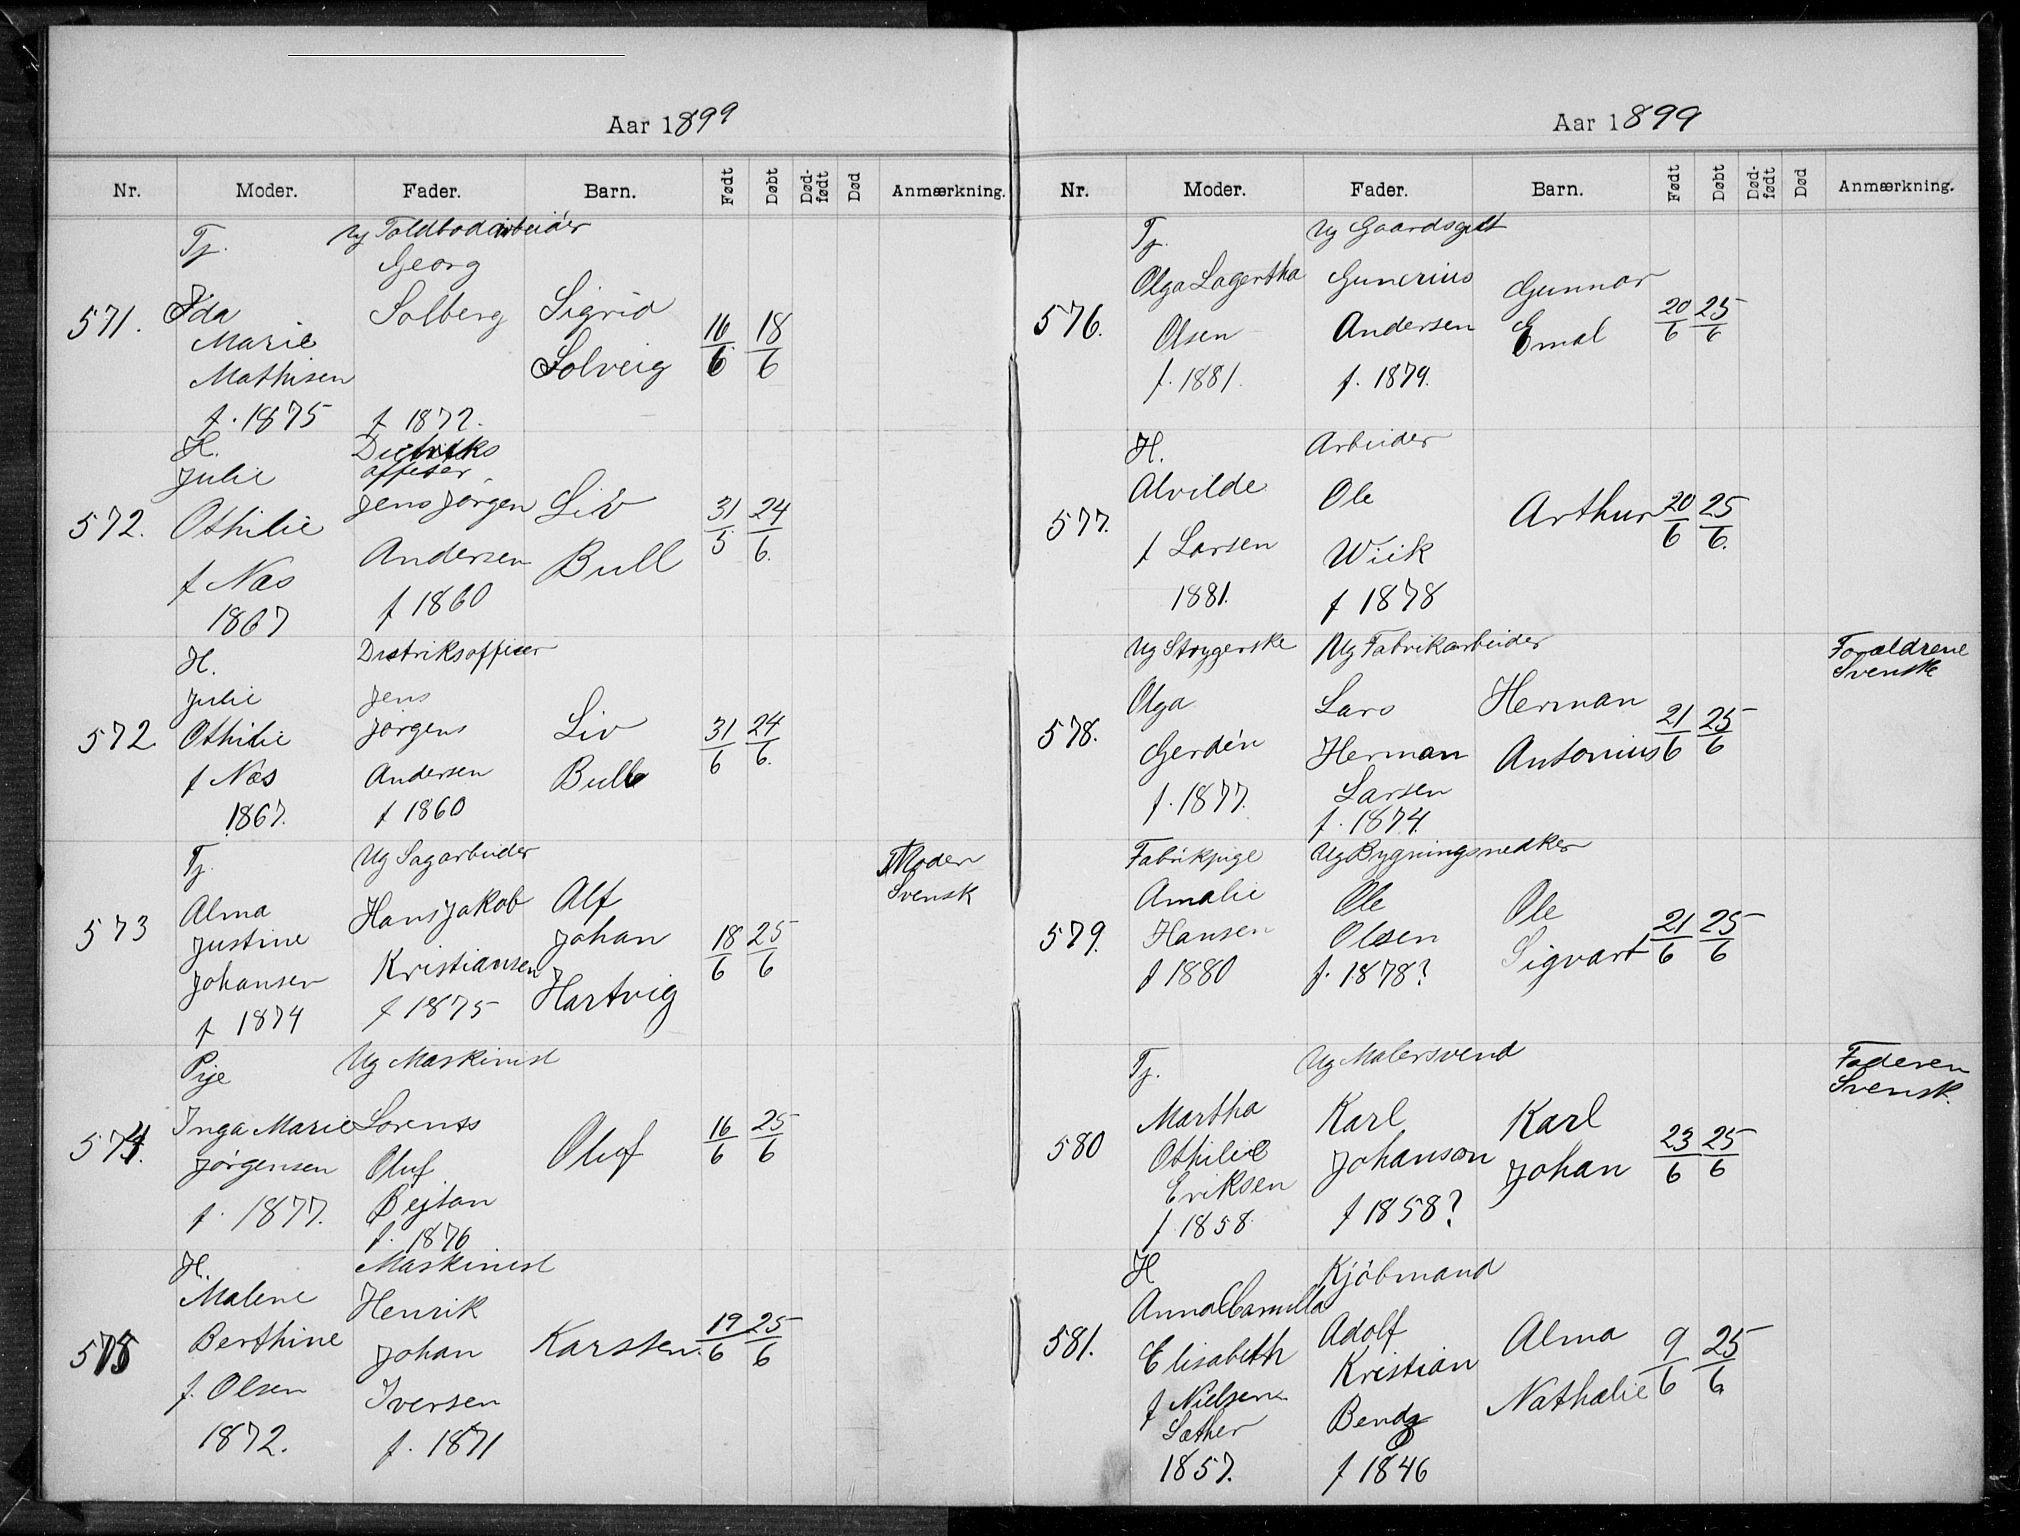 Aar 1899
Nr. Moder. Fader. Barn. Født Døbt Død-født Død Anmærkning.
571.
Tj.
Ida
Marie
Mathisen
f. 1875
Ug Toldbodarbeider
Georg
Solberg
f 1872.
Sigrid
Solveig
16/6 18/6
572.
H.
Julie
Othilie
f Næs
1867
Distriks
officer
Jens Jørgen
Andersen
f 1860
Liv
Bull
31/5 24/6.
572
H.
Julie
Othilie
f Næs
1867.
Distriksofficer
Jens
Jørgens
Andersen
f 1860
Liv
Bull
31/6 24/6.
573
Tj.
Alma
Justine
Johansen
f 1874
Ug Sagarbeider
Hans Jakob
Kristiansen
f 1875
Alf
Johan
Hartvig
18/6 25/6
Moder
Svensk
574.
Pige
Inga Marie
Jørgensen
f. 1877.
Ug Maskinist
Lorents
Oluf
Bejtan
f. 1876
Oluf
16/6 25/6
575
H.
Malene
Berthine
f. Olsen
1872.
Maskinist
Henrik
Johan
Iversen
f. 1871
Karsten.
19/6 25/6
Aar 1899
Nr. Moder. Fader. Barn. Født Døbt Død-født Død Anmærkning.
576.
Tj.
Olga Lagertha
Olsen
f. 1881.
Ug Gaardsgut
Gunerius
Andersen
f. 1879.
Gunnar
Emal
20/6 25/6
577.
H.
Alvilde
f Larsen
1881.
Arbeider
Ole
Wiik
f 1878
Arthur
20/6 25/6.
578.
Ug Strygerske
Olga
Gerdén
f. 1877.
Ug Fabrikarbeider
Lars
Herman
Larsen
f. 1874.
Herman
Antonius
21/6 25/6
Forældrene
Svenske
579.
Fabrikpige
Amalie
Hansen
f 1880
Ug Bygningsnedker
Ole
Olsen
f. 1878?
Ole
Sigvart
21/6 25/6
580
Tj.
Martha
Othilie
Eriksen
f. 1858.
Ug Malersvend
Karl
Johanson
f 1858?
Karl
Johan
23/6 25/6
Faderen
Svensk.
581.
H
Anna Camilla
Elisabeth
f Nielsen
Sæther
1857.
Kjøbmand
Adolf
Kristian
Bendz
f 1846
Alma
Nathalie
9/6 25/6